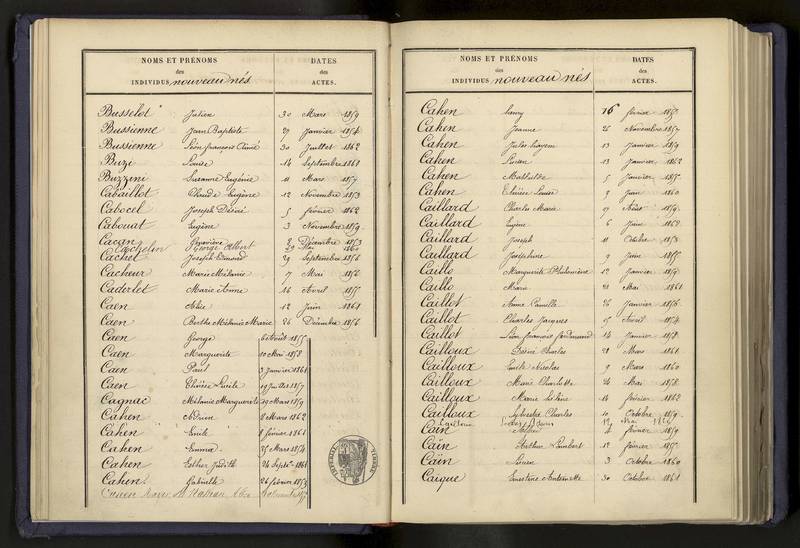 NOMS ET PRÉNOMS DATES
des des
INDIVIDUS nouveau nés. ACTES.
Busselot Julien 30 Mars 1859
Bussienne Jean Baptiste 29 Janvier 1854
Bussienne Léon françois Aimé 30 Juillet 1862
Buzi Louise 14 Septembre 1861
Buzzini Suzanne Eugénie 11 Mars 1857
Cabaillot Claude Eugène 12 Novembre 1853
Cabocel Joseph Désiré 5 février 1862
Cabouat Eugène 3 Novembre 1859
Cacan Geneviève 8 Décembre 1853
Cachelin George Albert 29 Mai 1860
Cachet Joseph Edmond 29 Septembre 1856
Cacheur Marie Mélanie 7 Mai 1856
Caderlet Marie Anne 16 Avril 1857
Caen 12 Juin 1861
Caen Berthe Mélanie Marie 26 Décembre 1856
Caen George 6 Août 1855
Caen Marguerite 10 Mai 1858
Caen Paul 3 Janvier 1861
Caen Lucile 1857
Cagniac Mélanie Marguerite 29 Mars 1859
Cahen 8 Mars 1862
Cahen Emile 8 février 1861
Cahen Emma 25 Mars 1854
Cahen Esther Judith 24 Septe. 1861
Cahen Gabrielle 26 février 1853
NOMS ET PRÉNOMS DATES
des des
INDIVIDUS nouveau nés ACTES.
Cahen henry 16 février 1855
Cahen Jeanne 26 Novembre 1857
Cahen Jules 13 Janvier 1859
Cahen Lucien 13 Janvier 1862
Cahen Mathilde 5 Janvier 1855
Cahen Louise 9 Juin 1860
Caillard Charles Marie 27 Août 1859
Caillard Eugène 6 Juin
Caillard Joseph 11 Octobre 1853
Caillard Joséphine 9 Juin 1855
Caillo Marguerite Philomène 12 Janvier 1859
Caillo Marie 21 Mai 1861
Caillot Anne Camille 26 Janvier 1856
Caillot Charles Jacques 25 Avril 1854
Caillot Léon françois ferdinand 14 Janvier 1858
Cailloux Désiré Charles 28 Mars 1861
Cailloux Emile Nicolas 9 Mars 1860
Cailloux Marie Charlotte 24 Mai 1858
Cailloux Marie 14 février 1862
Cailloux Sylvestre Charles 10 Octobre 1859
Caïn 2 février 1859
Caïn Arthur Lambert 12 février 1855
Caïn Lucien 3 Octobre 1860
Caïque Ernestine Antoinette 30 Octobre 1861